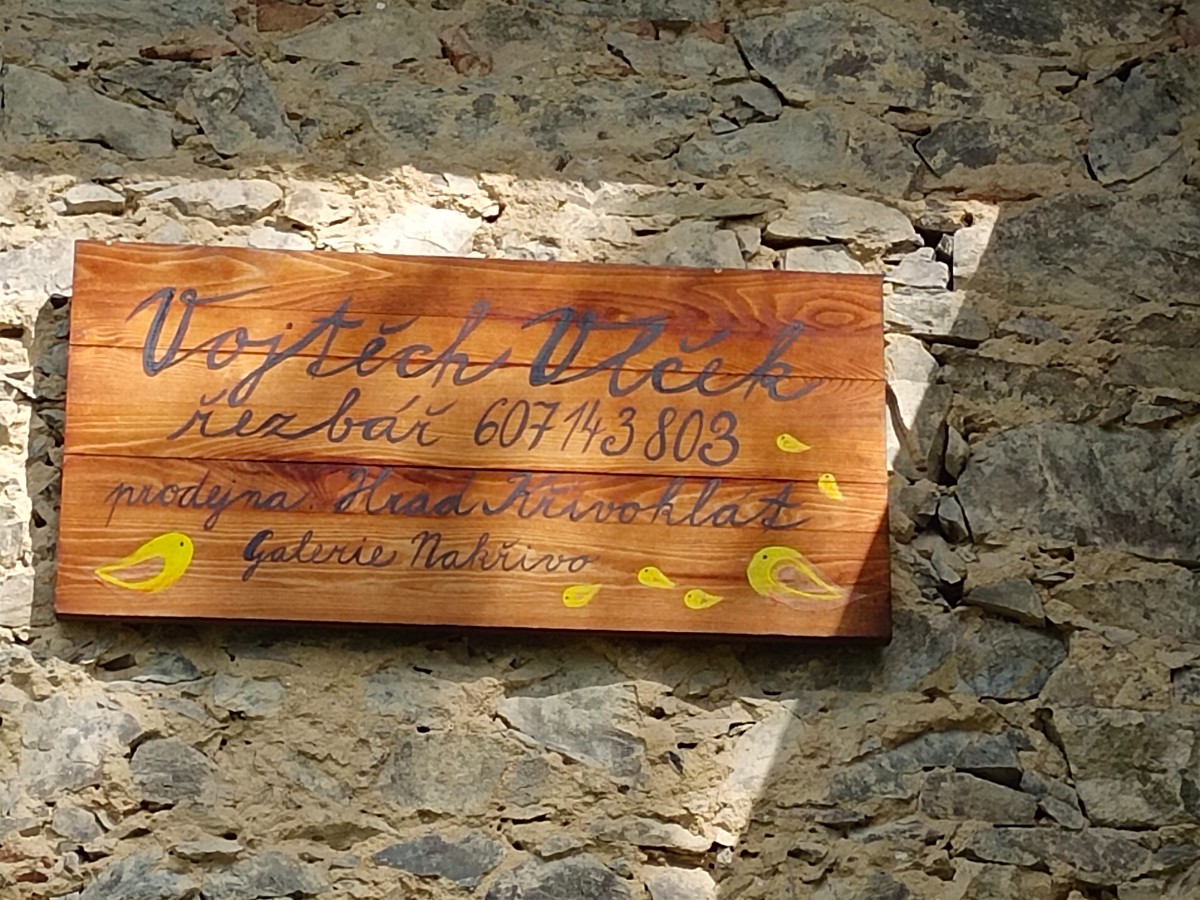 Vojtěch Vlček
řezbář 607 143 803
prodejna: Hrad Křivoklát
Galerie Nakřivo